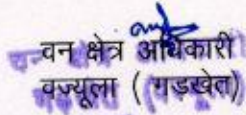 वन क्षेत्र अधिकारी
वज्यूला ( गडखेत)